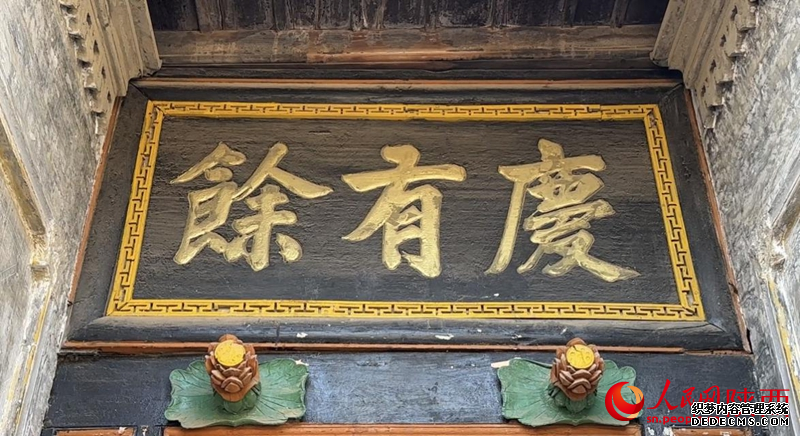 慶有餘
人民网 陕西
织梦内容管理系统
DEDECMS.COM